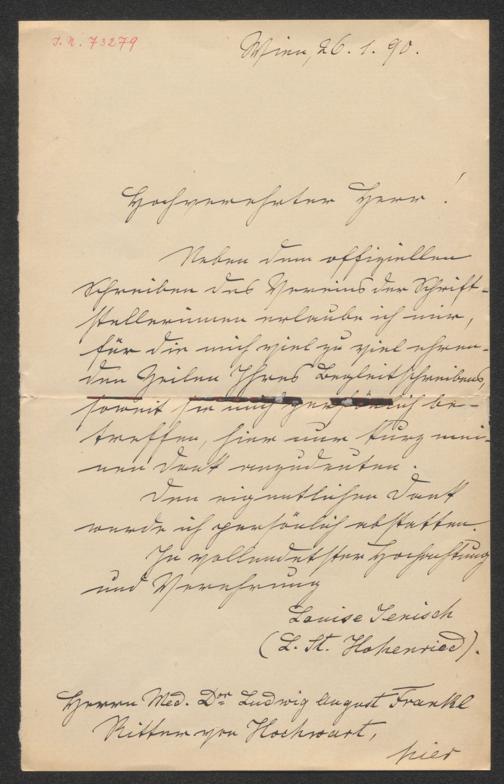 I.N. 73279
Wien, 26. 1. 90.
Hochverehrter Herr!
Neben dem offiziellen
Schreiben des Vereins der Schrift-
stellerinnen erlaube ich mir,
für die mich viel zu viel ehren-
den Zeilen Ihres Begleitschreibens,
soweit sie mich persönlich be-
treffen, hier nur kurz mei-
nen Dank anzudeuten.
Den eigentlichen Dank
werde ich persönlich abstatten.
In vollendetster Hochachtung
und Verehrung
Louise Jenisch
(L. St. Hohenried).
Herrn Med. Dor Ludwig August Frankl
Ritter von Hochwart,
hier